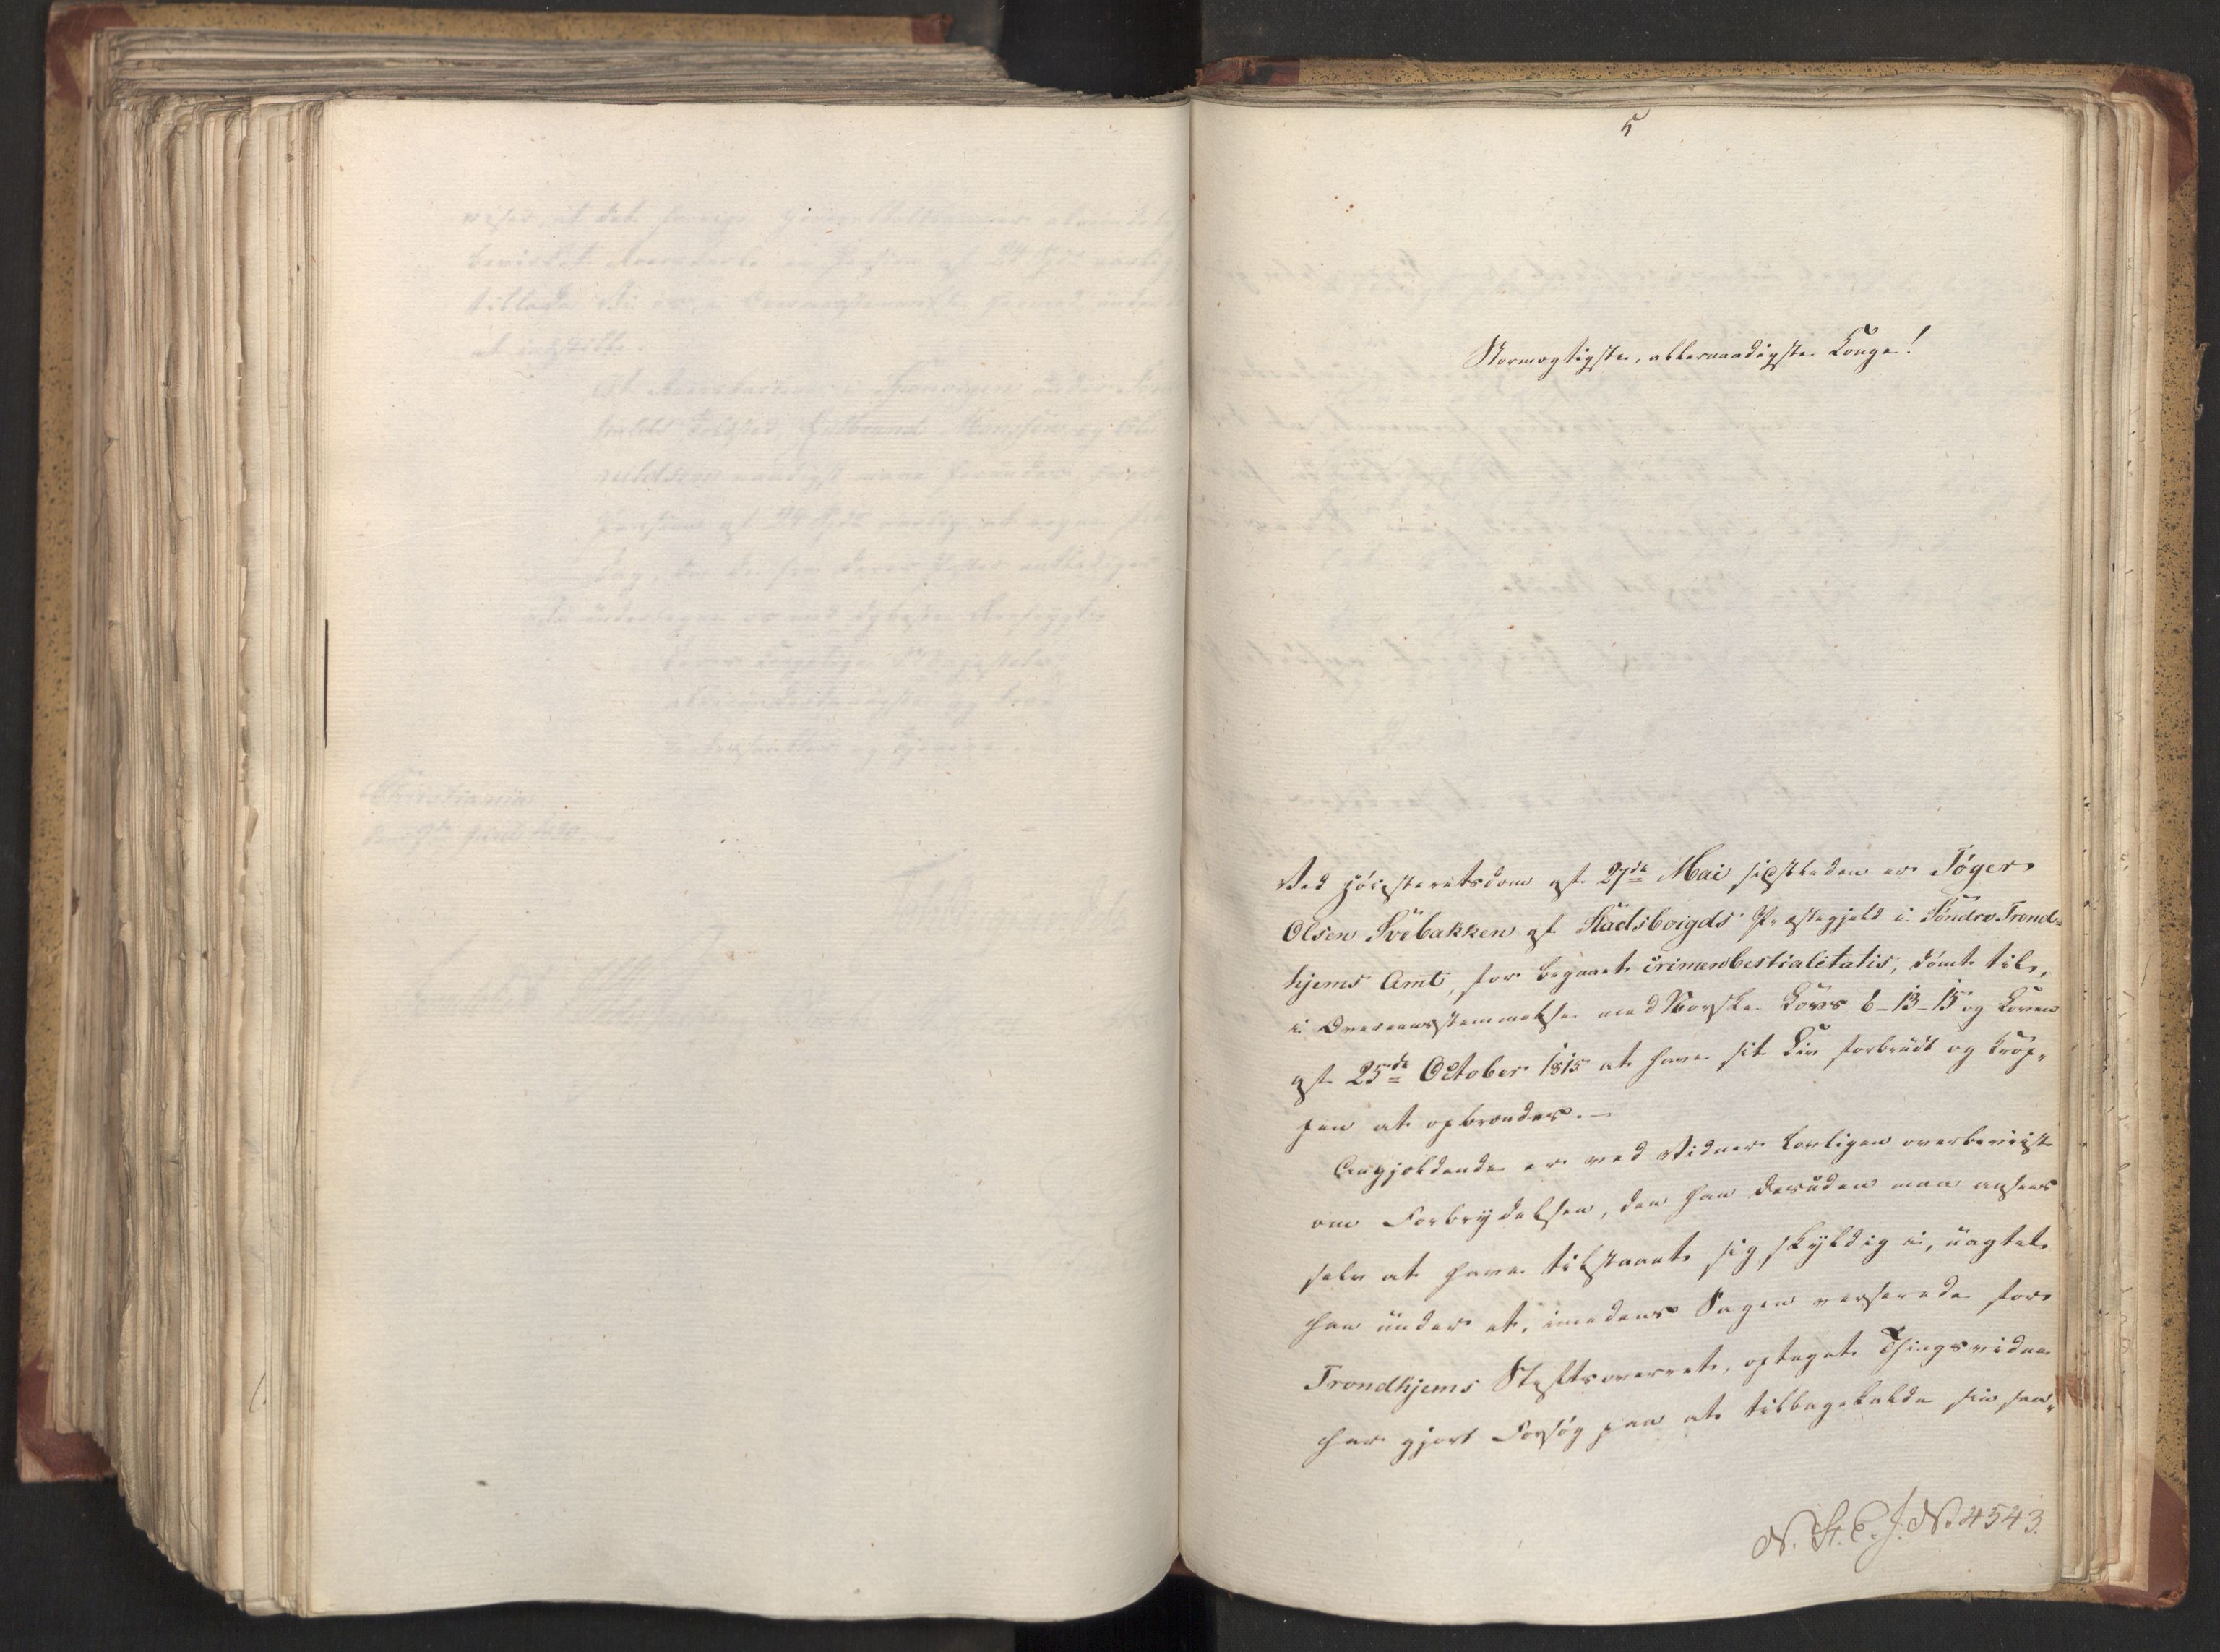 5
Stormægtigste, allernaadigste Konge!
Ved Høiesteretsdom af 27de Mai sidstleden er Töger
Olsen Svebakken af Stadsboigds Præstegjeld i Söndre Trond-
hjems Amt, for begaaet crimen bestialitatis, dömt til,
i Overeensstemmelse med Norske Lovs 6-13-15 og Loven
af 25de October 1815 at have sit Liv forbrudt og Krop-
pen at opbrændes. —
Angjeldende er ved Vidner lovligen overbeviist
om Forbrydelsen, den han desuden maa ansees
selv at have tilstaaet sig skyldig i, uagtet
han under et, imedens Sagen verserede for
Trondhjems Stiftsoverret, optaget Thingsvidne
har gjort Forsög paa at tilbagekalde sin saa-
N. St. E. J. No 4543.